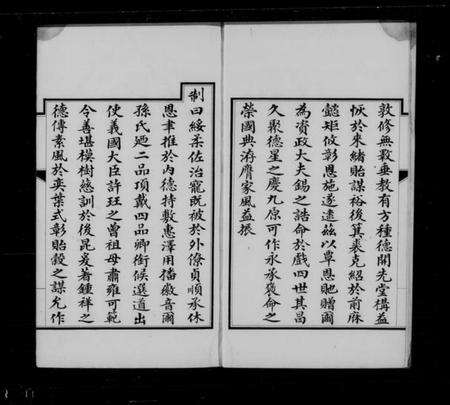 敦修無斁垂教有方種德開先堂搆益
恢於來緒貽謀裕後箕裘克紹於前庥
懿矩攸彰恩施遂逮茲以覃恩貤贈爾
為資政大夫錫之誥命於戲四世其昌
久聚德星之慶九原可作永承褒命之
榮國典洊膺家風益振
制曰綏柔佐治寵既被於外僚貞順承休
恩聿推於內德特敷惠澤用播徽音爾
孫氏廼二品頂戴四品卿銜候選道出
使義國大臣許玨之曾祖母肅雍可範
令善堪模樹慈訓於後昆爰著鍾祥之
德傳素風於奕葉式彰貽穀之謀允作